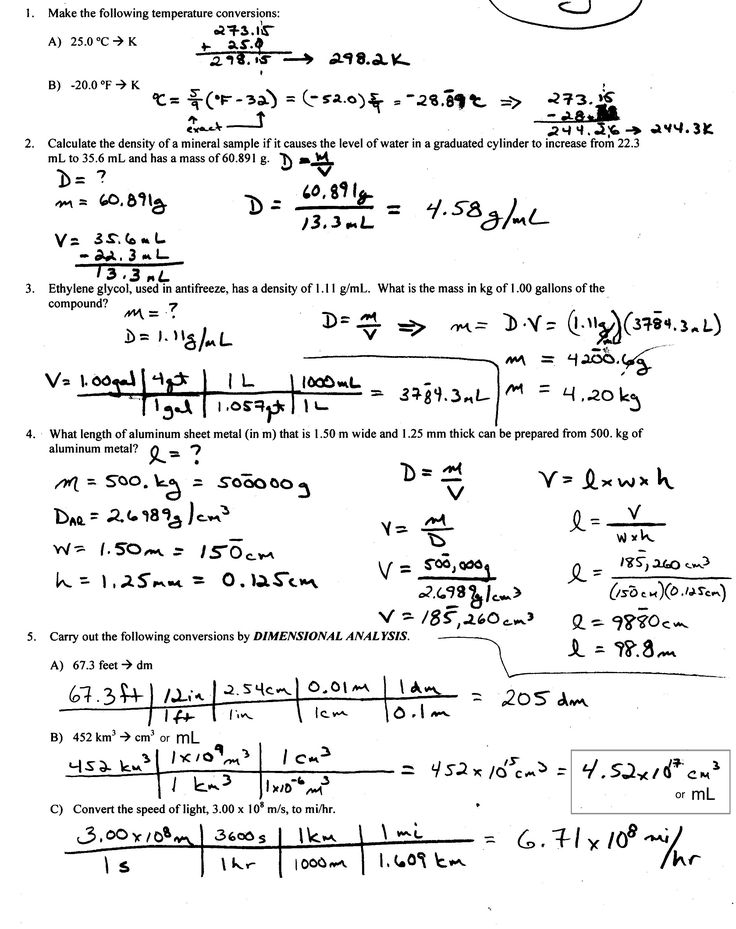 1. Make the following temperature conversions:
A) 25.0 °C → K
273.15
+ 25.0
298.15 → 298.2K
B) -20.0 °F → K
°C = 5/9 (°F - 32) = (-52.0) 5/9 = -28.89 °C ⇒ 273.15
exact
244.26 → 244.3K
2. Calculate the density of a mineral sample if it causes the level of water in a graduated cylinder to increase from 22.3
mL to 35.6 mL and has a mass of 60.891 g. D = M/V
D = ?
m = 60.891g
D = 60.891g / 13.3mL = 4.58 g/mL
V = 35.6mL
- 22.3mL
13.3mL
3. Ethylene glycol, used in antifreeze, has a density of 1.11 g/mL. What is the mass in kg of 1.00 gallons of the
compound?
m = ?
D = 1.11g/mL
D = M/V ⇒ m = D·V = (1.11g/mL)(3784.3mL)
m = 4200.6g
V = 1.00gal | 4qt | 1L | 1000mL = 3784.3mL
1gal | 1.057qt | 1L
m = 4.20kg
4. What length of aluminum sheet metal (in m) that is 1.50 m wide and 1.25 mm thick can be prepared from 500. kg of
aluminum metal? l = ?
m = 500. kg = 500000g
D = M/V
V = l×w×h
D = 2.6989g/cm³
V = M/D
l = V / w×h
w = 1.50m = 150cm
V = 500,000g / 2.6989g/cm³
l = 185,260cm³ / (150cm)(0.125cm)
h = 1.25mm = 0.125cm
V = 185,260cm³
l = 9880cm
l = 98.8m
5. Carry out the following conversions by DIMENSIONAL ANALYSIS.
A) 67.3 feet → dm
67.3ft | 12in | 2.54cm | 0.01m | 1dm = 205 dm
1ft | 1in | 1cm | 0.1m
B) 452 km³ → cm³ or mL
452 km³ | 1×10⁹m³ | 1cm³ = 452×10¹⁵cm³ = 4.52×10¹⁷ cm³
1 km³ | 1×10⁻⁶m³
or mL
C) Convert the speed of light, 3.00 x 10⁸ m/s, to mi/hr.
3.00×10⁸m | 3600s | 1km | 1mi = 6.71×10⁸ mi/hr
1s | 1hr | 1000m | 1.609km